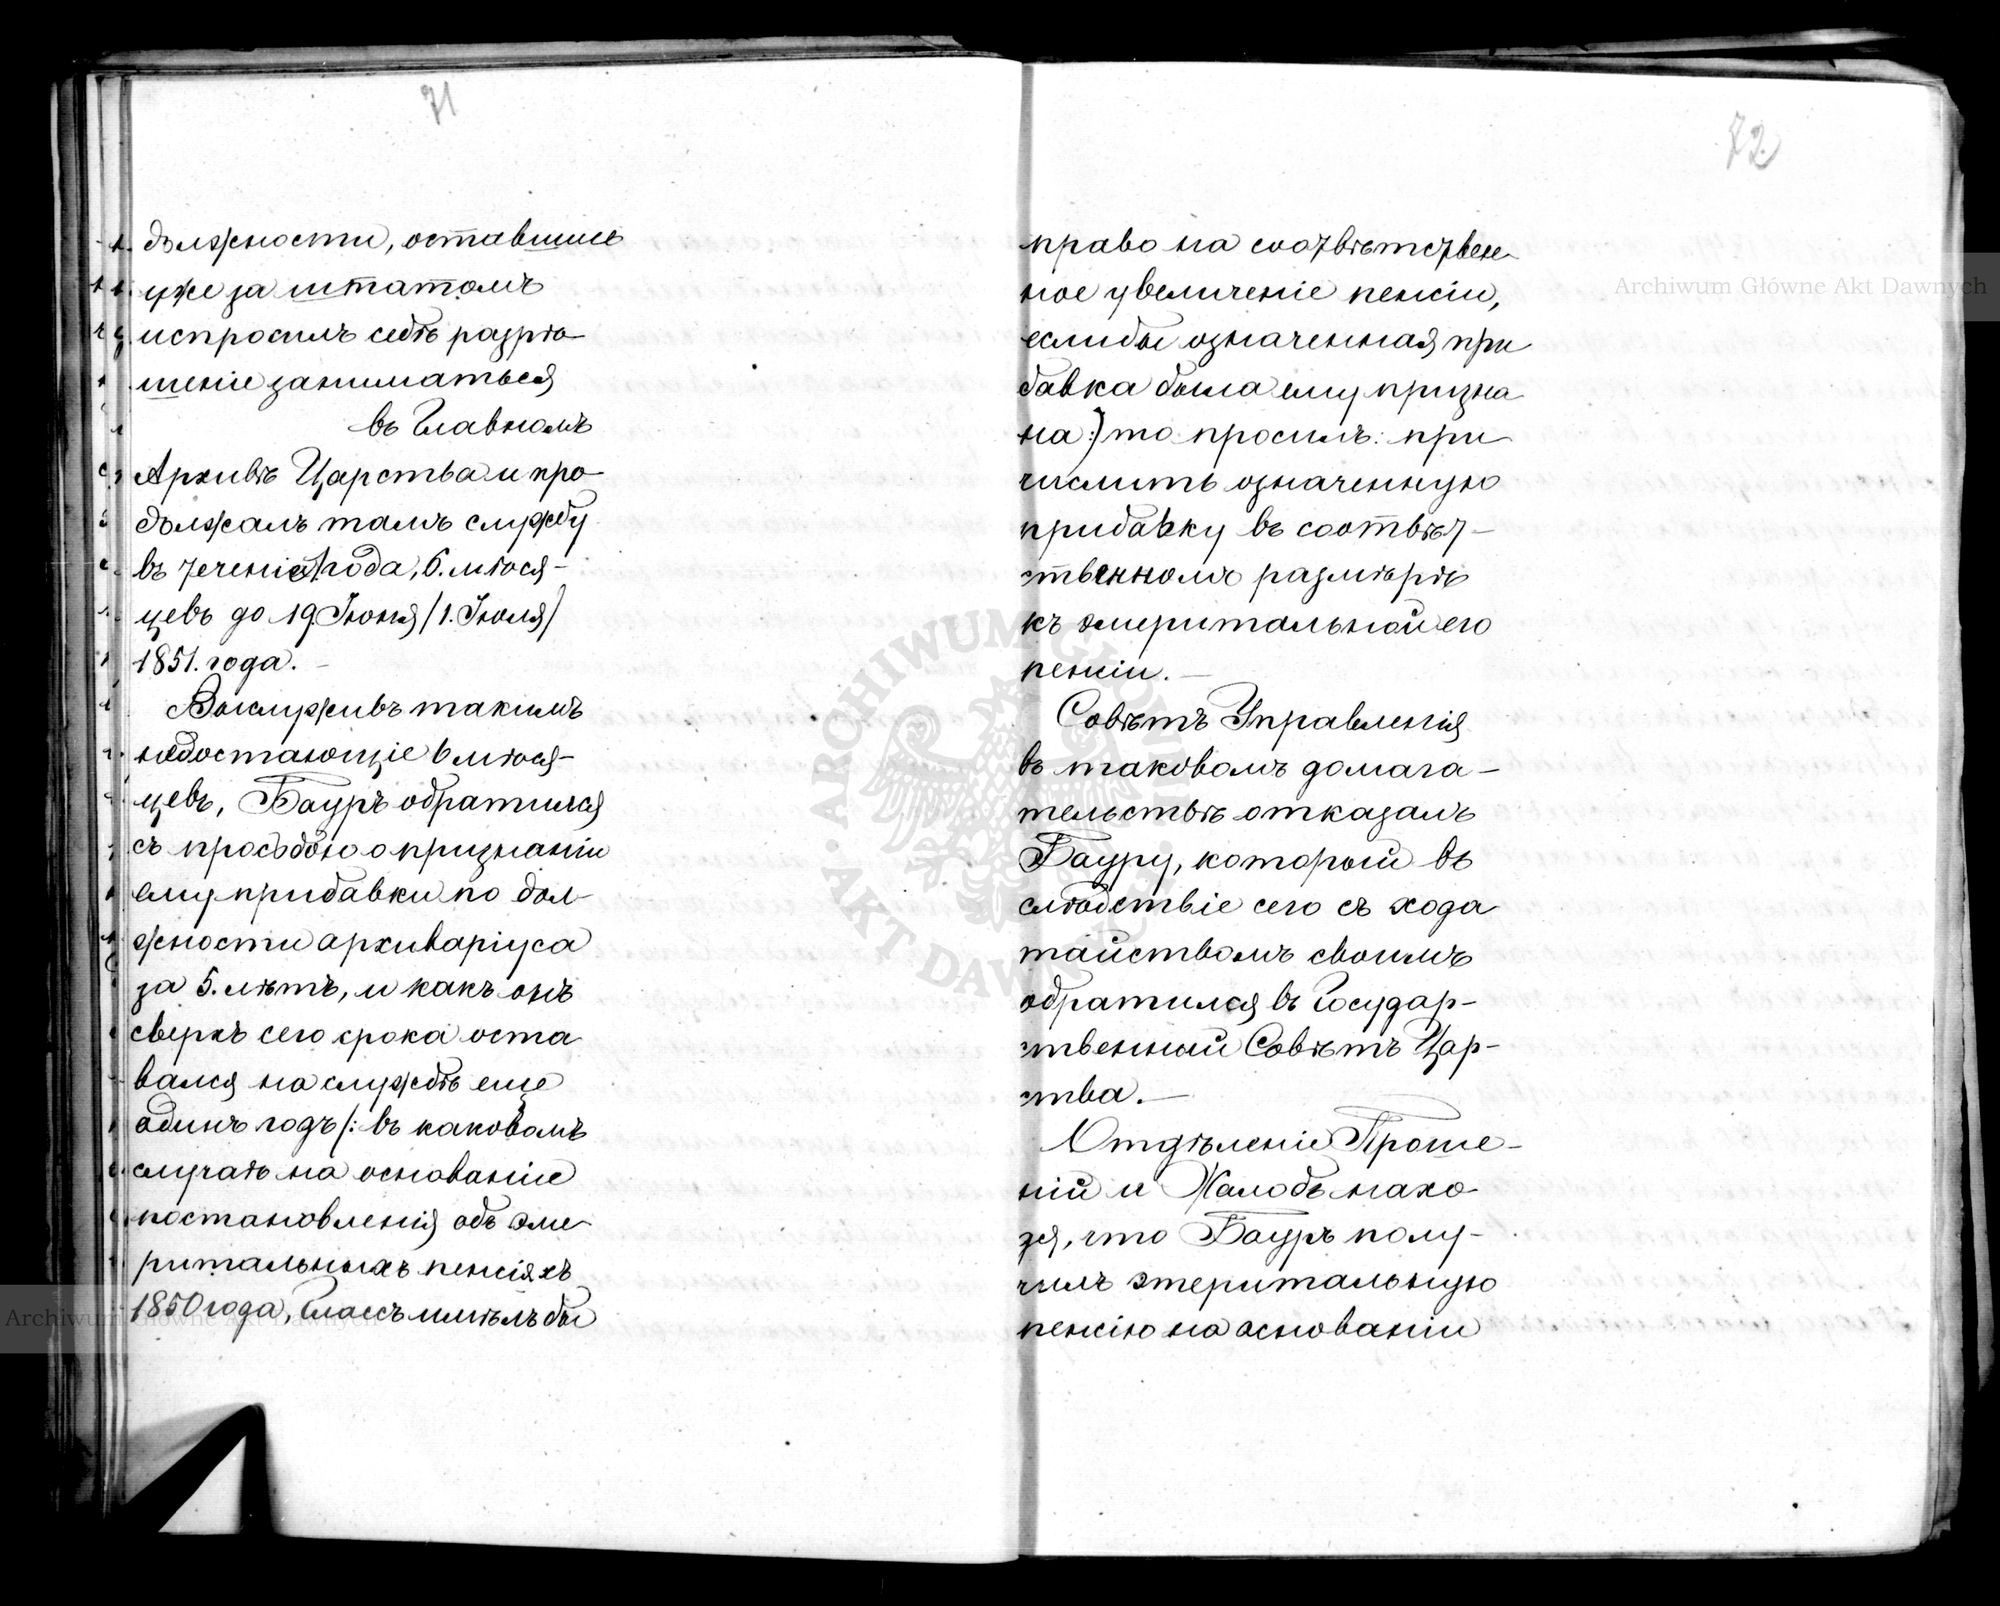 71
должности, оставшись
уже за штатомъ
испросилъ себѣ разрѣ-
шеніе заниматься
въ Главномъ
Архивѣ Царства и про-
должалъ тамъ службу
въ теченіе года, 6. мѣся-
цевъ до 19 Іюня /1. Іюля/
1851. года. –
Выслуживъ такимъ
недостающіе 6 мѣся-
цевъ, Бауръ обратился
съ просьбою о признаніи
ему прибавки по дол-
жности архиваріуса
за 5. лѣтъ, и какъ онъ
сверхъ сего срока оста
вался на службѣ еще
одинъ годъ /: въ каковомъ
случаѣ на основаніе
постановленія объ эме-
ритальныхъ пенсіяхъ
1850 года, имѣлъ бы
72
право на соотвѣтствен-
ное увеличеніе пенсіи,
еслибы означенная при
бавка была ему призна
на:) то просилъ: при-
числить означенную
прибавку въ соотвѣт-
ственномъ размѣрѣ
къ эмеритальной его
пенсіи. –
Совѣтъ Управленія
въ таковомъ домага-
тельствѣ отказалъ
Бауру, который въ
слѣдствіе сего съ хода
тайствомъ своимъ
обратился въ Государ-
ственный Совѣтъ Цар-
ства. –
Отдѣленіе Проше-
ній и Жалобъ нахо-
дя, что Бауръ полу-
чилъ эмеритальную
пенсію на основаніи
Archiwum Główne Akt Dawnych
Archiwum Główne Akt Dawnych
ARCHIWUM GŁÓWNE AKT DAWNYCH